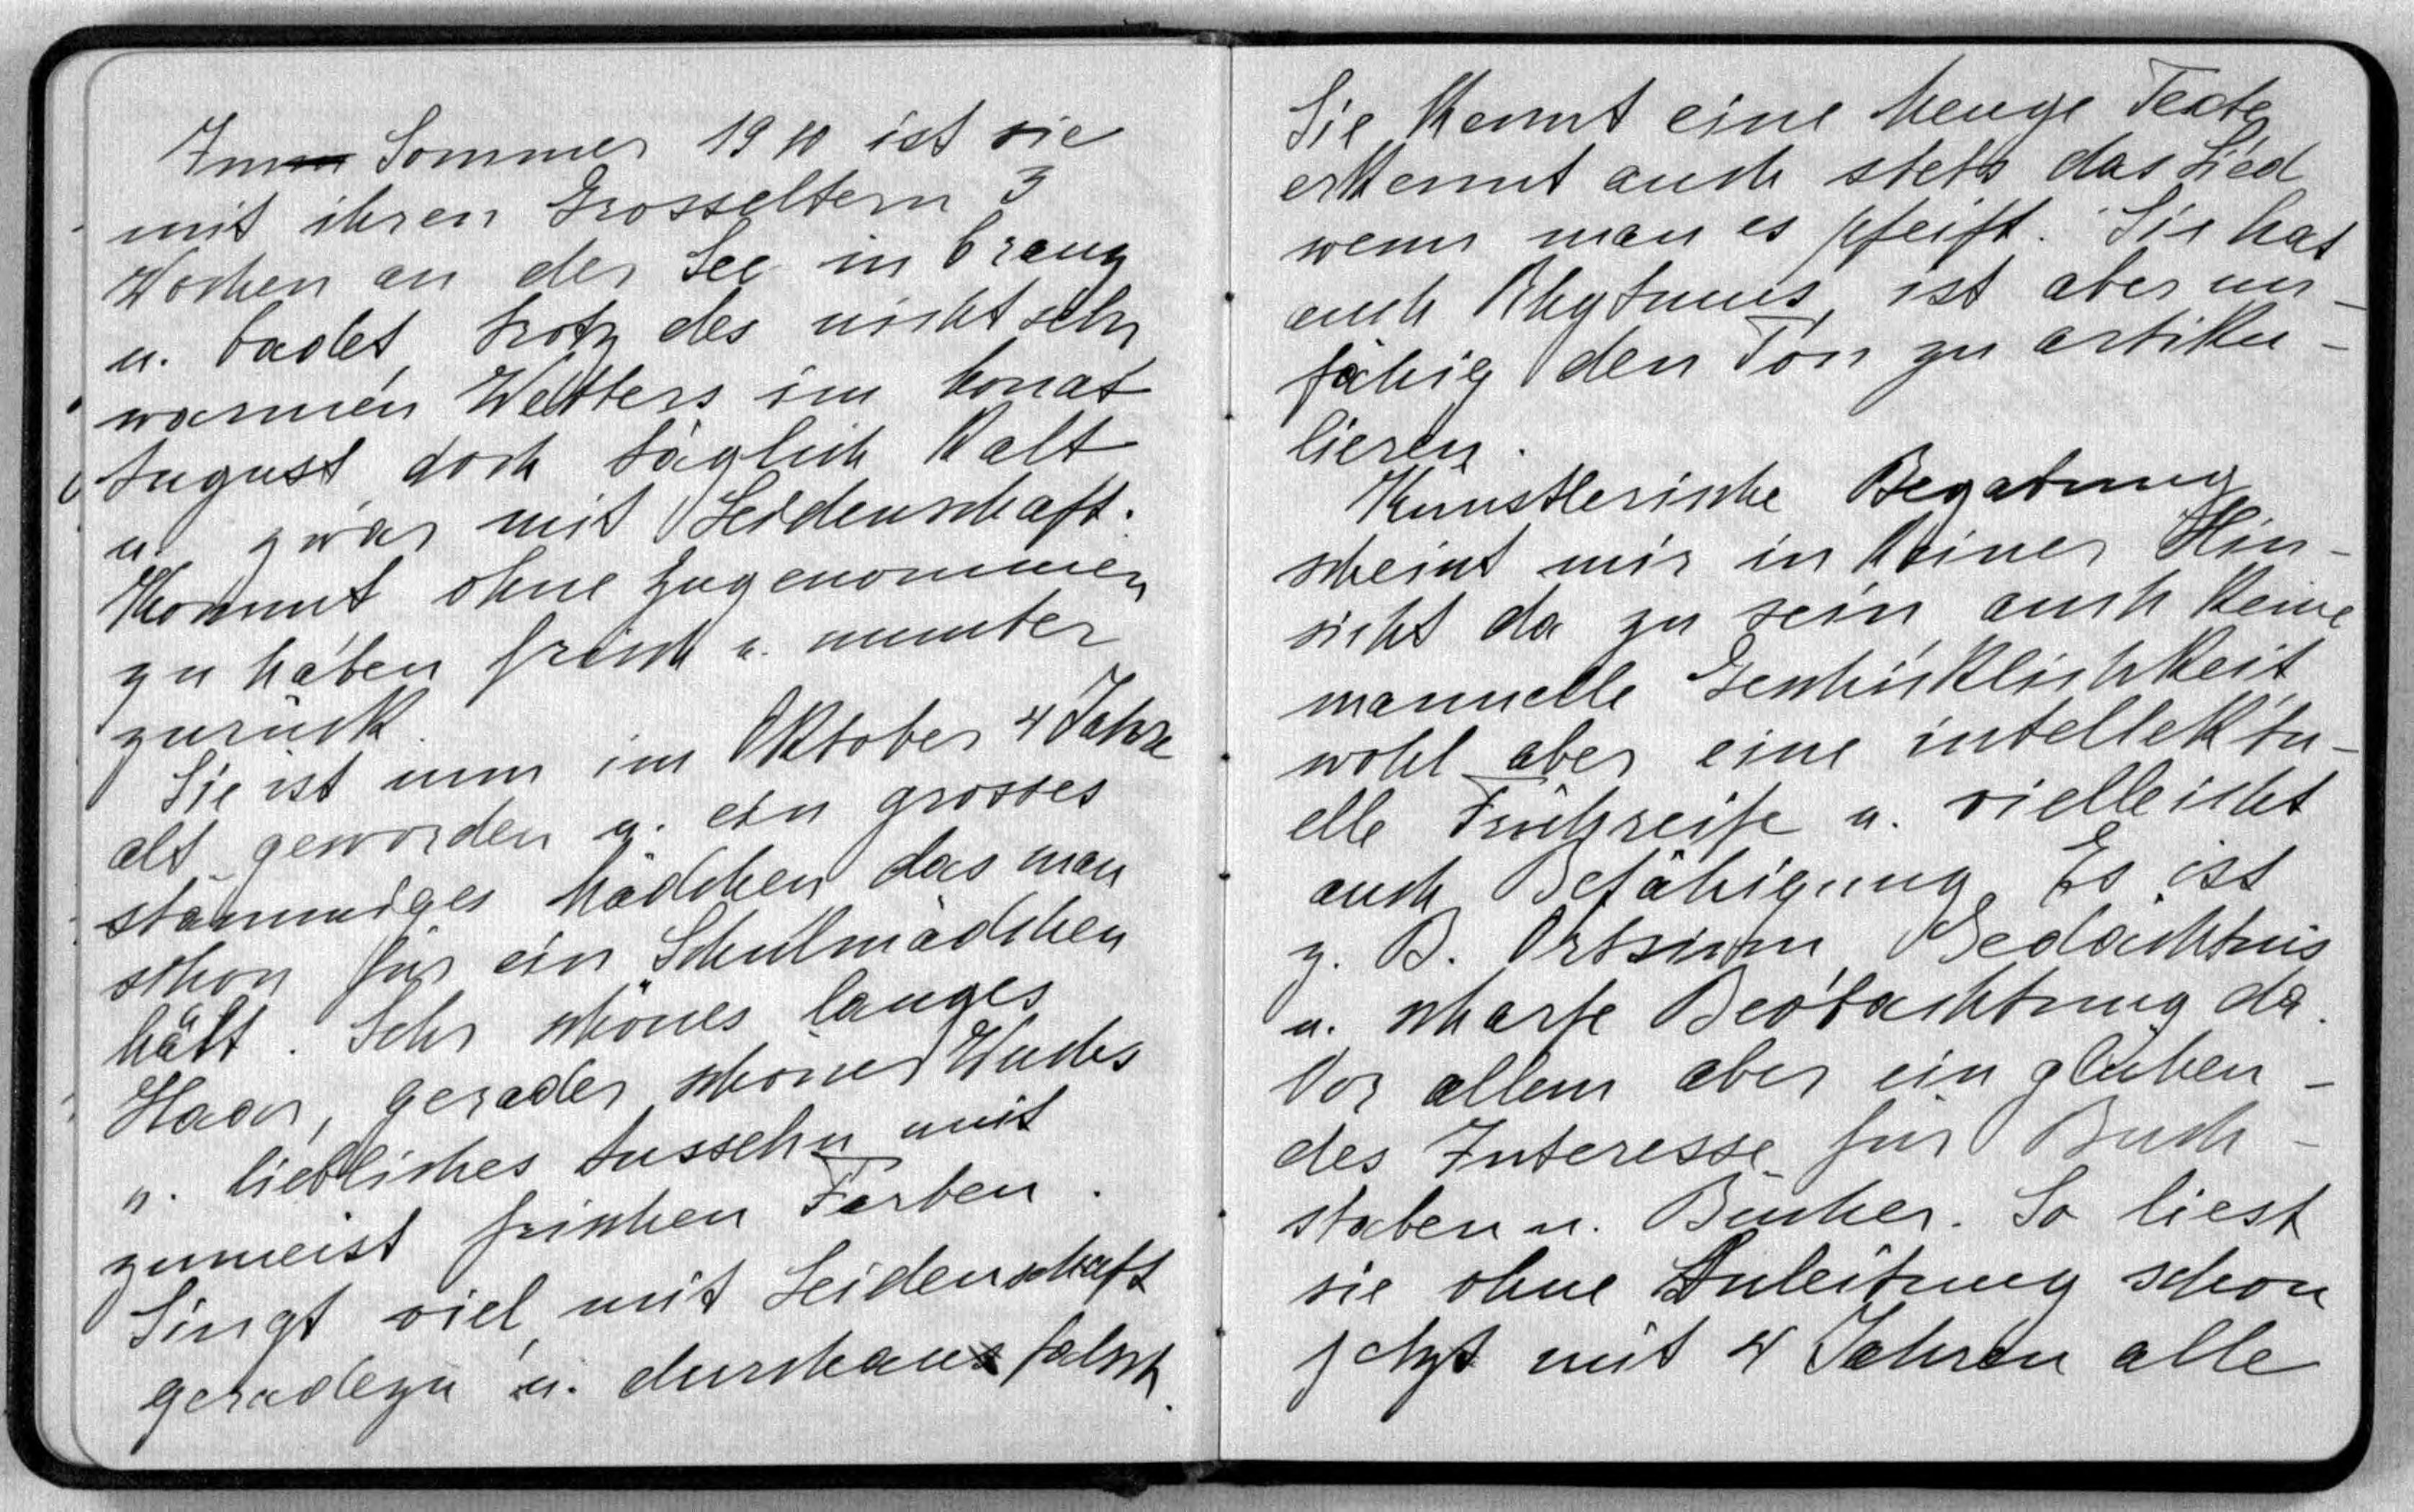 Im Sommer 1910 ist sie
mit ihren Grosseltern 3
Wochen an der See in Cranz
u. badet trotz des nicht sehr
warmen Wetters im Monat
August doch täglich kalt
u. zwar mit Leidenschaft.
Kommt ohne Zug genommen
zu haben frisch u. munter
zurück.
Sie ist nun im Oktober 4 Jahre
alt geworden u. ein grosses
stämmiges Mädchen das man
schon für ein Schulmädchen
hält. Sehr schönes langes
Haar, gerader schöner Wuchs
u. liebliches Aussehn mit
zumeist frischen Farben.
Singt viel, mit Leidenschaft
geradezu u. durchaus falsch.
Sie kennt eine Menge Texte,
erkennt auch stets das Lied
wenn man es pfeift. Sie hat
auch Rhytmus, ist aber un-
fähig den Ton zu artiku-
lieren.
Künstlerische Begabung
scheint mir in keiner Hin-
sicht da zu sein auch keine
manuelle Geschicklichkeit
wohl aber eine intellektu-
elle Frühreife u. vielleicht
auch Befähigung. Es ist
z. B. Ortsinn, Gedächtnis
u. scharfe Beobachtung da.
Vor allem aber ein glühen-
des Interesse für Buch-
staben u. Bücher. So liest
sie ohne Anleitung schon
jetzt mit 4 Jahren alle